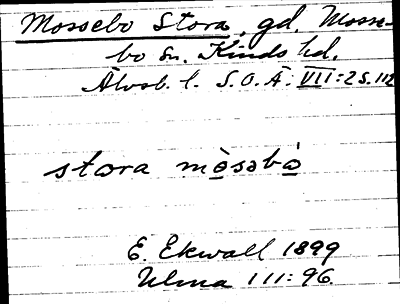 Mossebo Stora, gd. Mosse-
bo sn. Kinds hd.
Älvsb. l. S.O.Ä. VII:2 S. 112
stora mòsəbò
E. Ekwall 1899
Ulma 111:96.